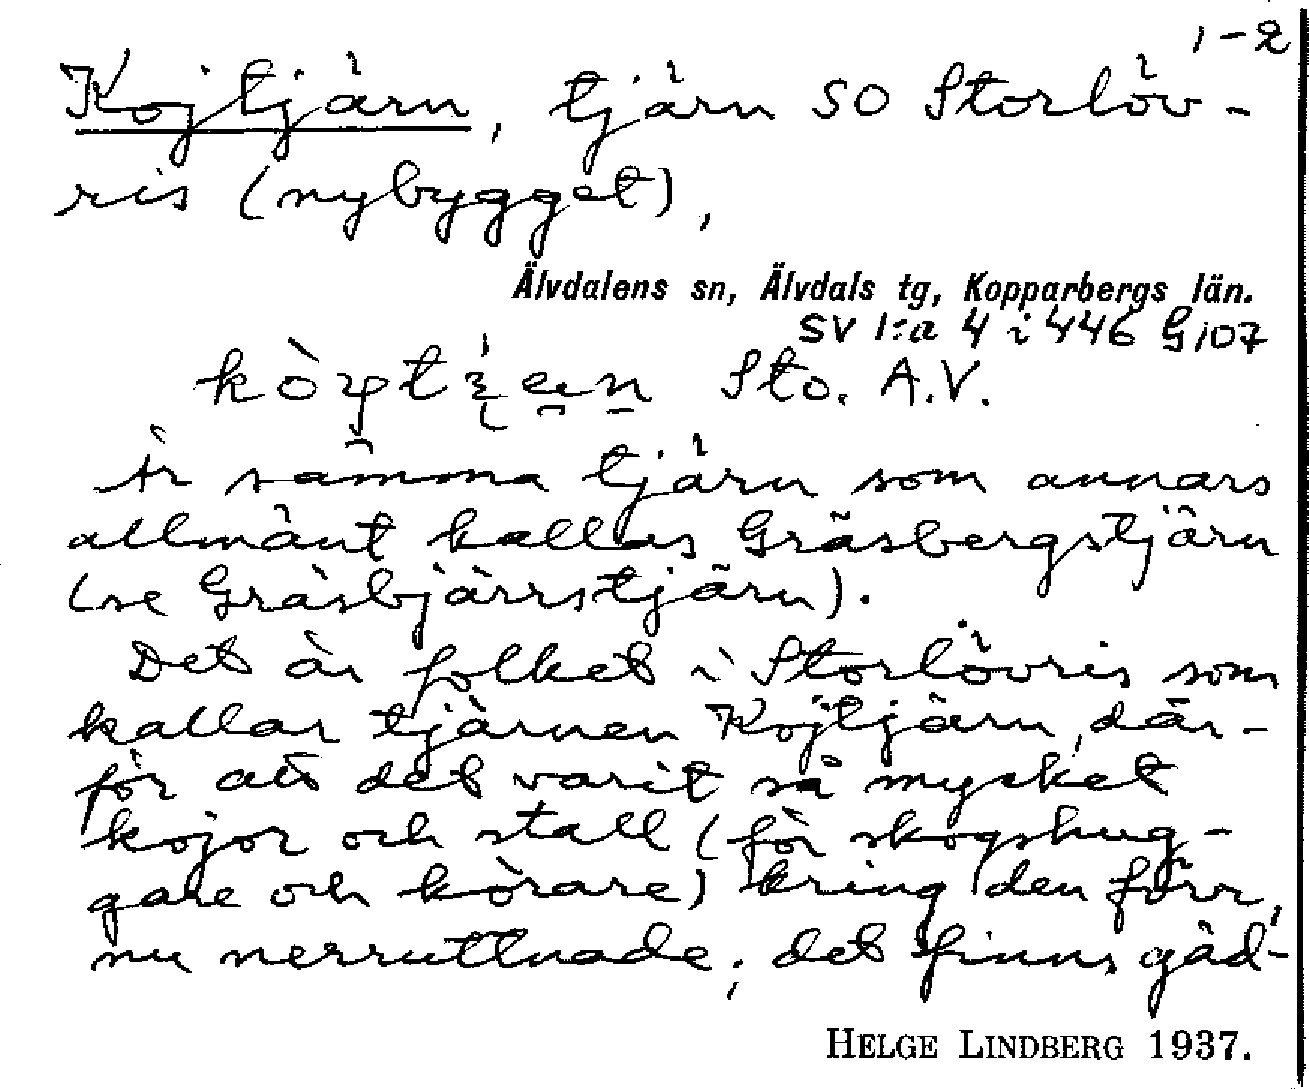 1-2
Kojtjärn, tjärn SO Storlöv-
ris (nybygget),
Älvdalens sn, Älvdals tg, Kopparbergs län.
SV 1:a 4 i 446 G107
Sto. A.V.
Är samma tjärn som annars
allmänt kallas Gräsbergstjärn
(se Gräsbjärrstjärn).
Det är folket i Storlövris som
kallar tjärnen Kojtjärn, där-
för att det varit så mycket
kojor och stall (för skogshug-
gare och körare) kring den förr,
nu nerruttnade; det finns gäd-
HELGE LINDBERG 1937.